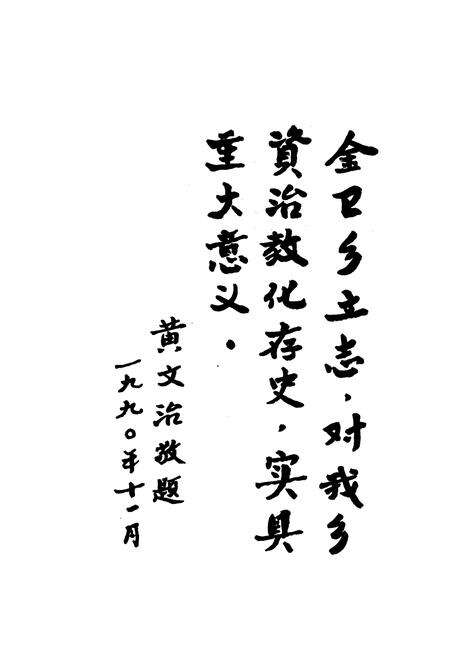 金卫乡立志，对我乡
資治教化存史，实具
重大意义。
黄文治敬题
一九九〇年十一月